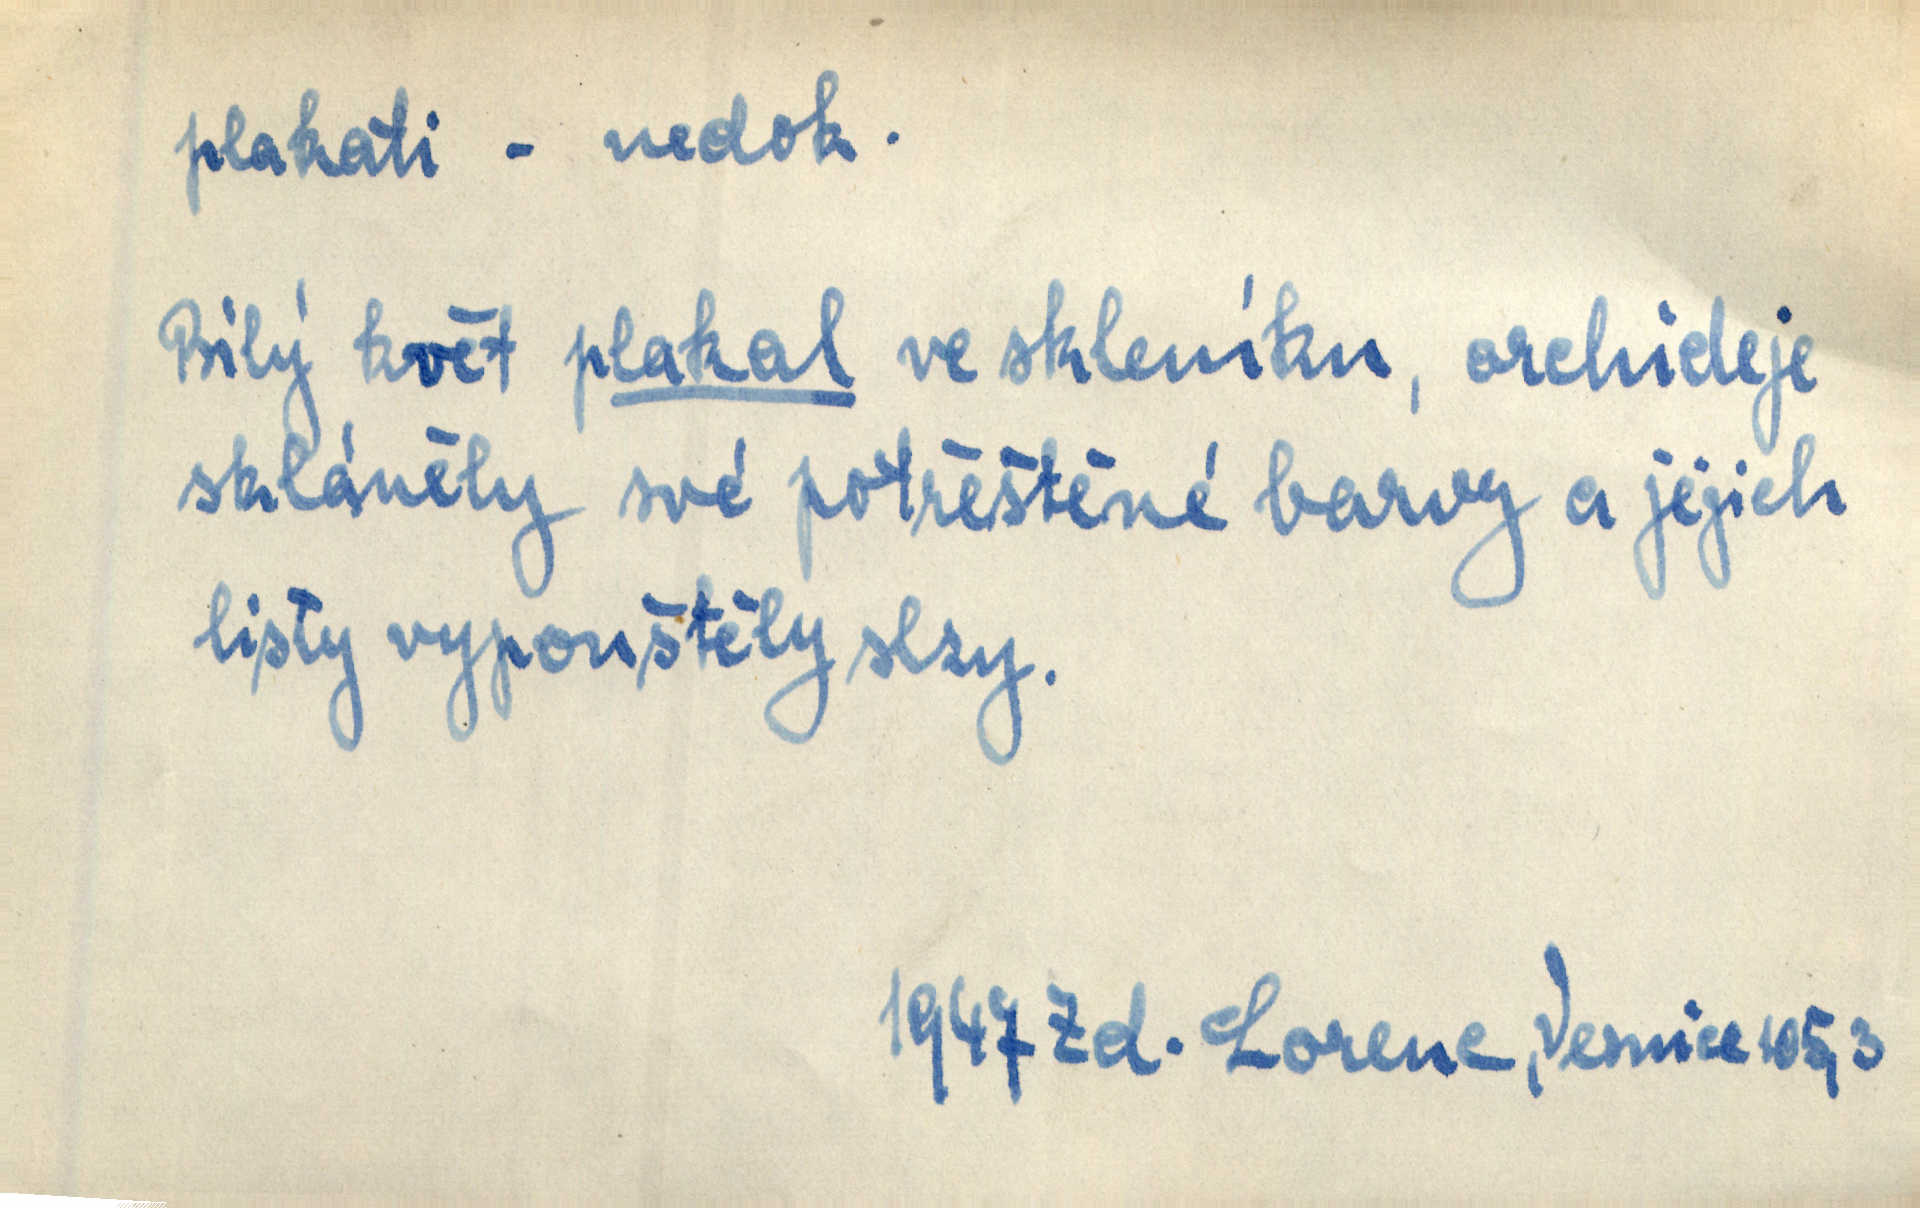 plakati - nedok.
Bílý květ plakal ve skleníku, orchideje
skláněly své potřeštěné barvy a jejich
listy vypouštěly slzy.
1947 Zd. Lorenc, Vesnice 105,3